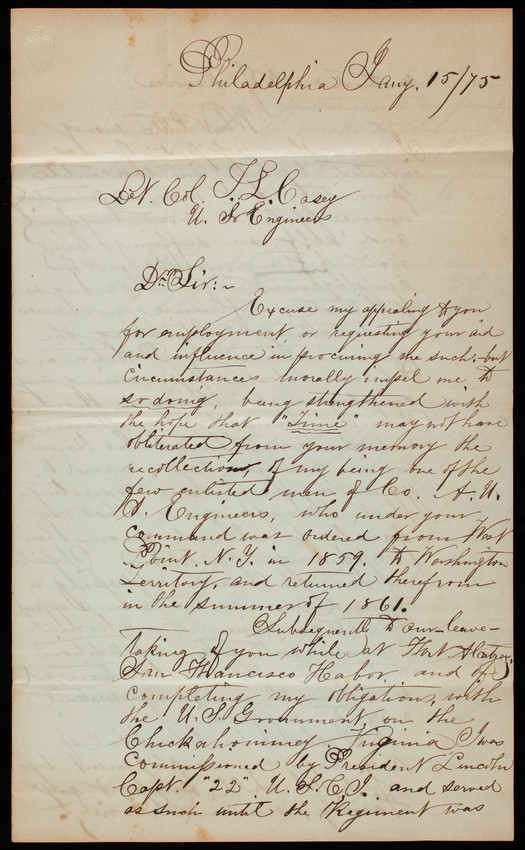 Philadelphia Jany. 15/75
Lt. Col. T. L. Casey
U. S. Engineers
Dr. Sir:-
Excuse my appealing to you
for employment, or requesting your aid
and influence in procuring me such:-but
circumstances, morally impel me to
so doing, being strengthened with
the hope that "Time" may not have
obliterated from your memory the
recollection, of my being one of the
few enlisted men of Co. A. U.
S. Engineers, who under your
command was ordered from West
Point. N.Y. in 1859. to Washington
Territory, and returned therefrom
in the summer of 1861.
Subsequently to our leave-
taking of you while at Fort Alcatraz,
San Francisco Habor, and of
completing my obligation, with
the U. S. Government, on the
Chickahominey Virginia I was
commissioned by President Lincoln
Capt. "22" U.S.C.I. and served
as such until the Regiment was